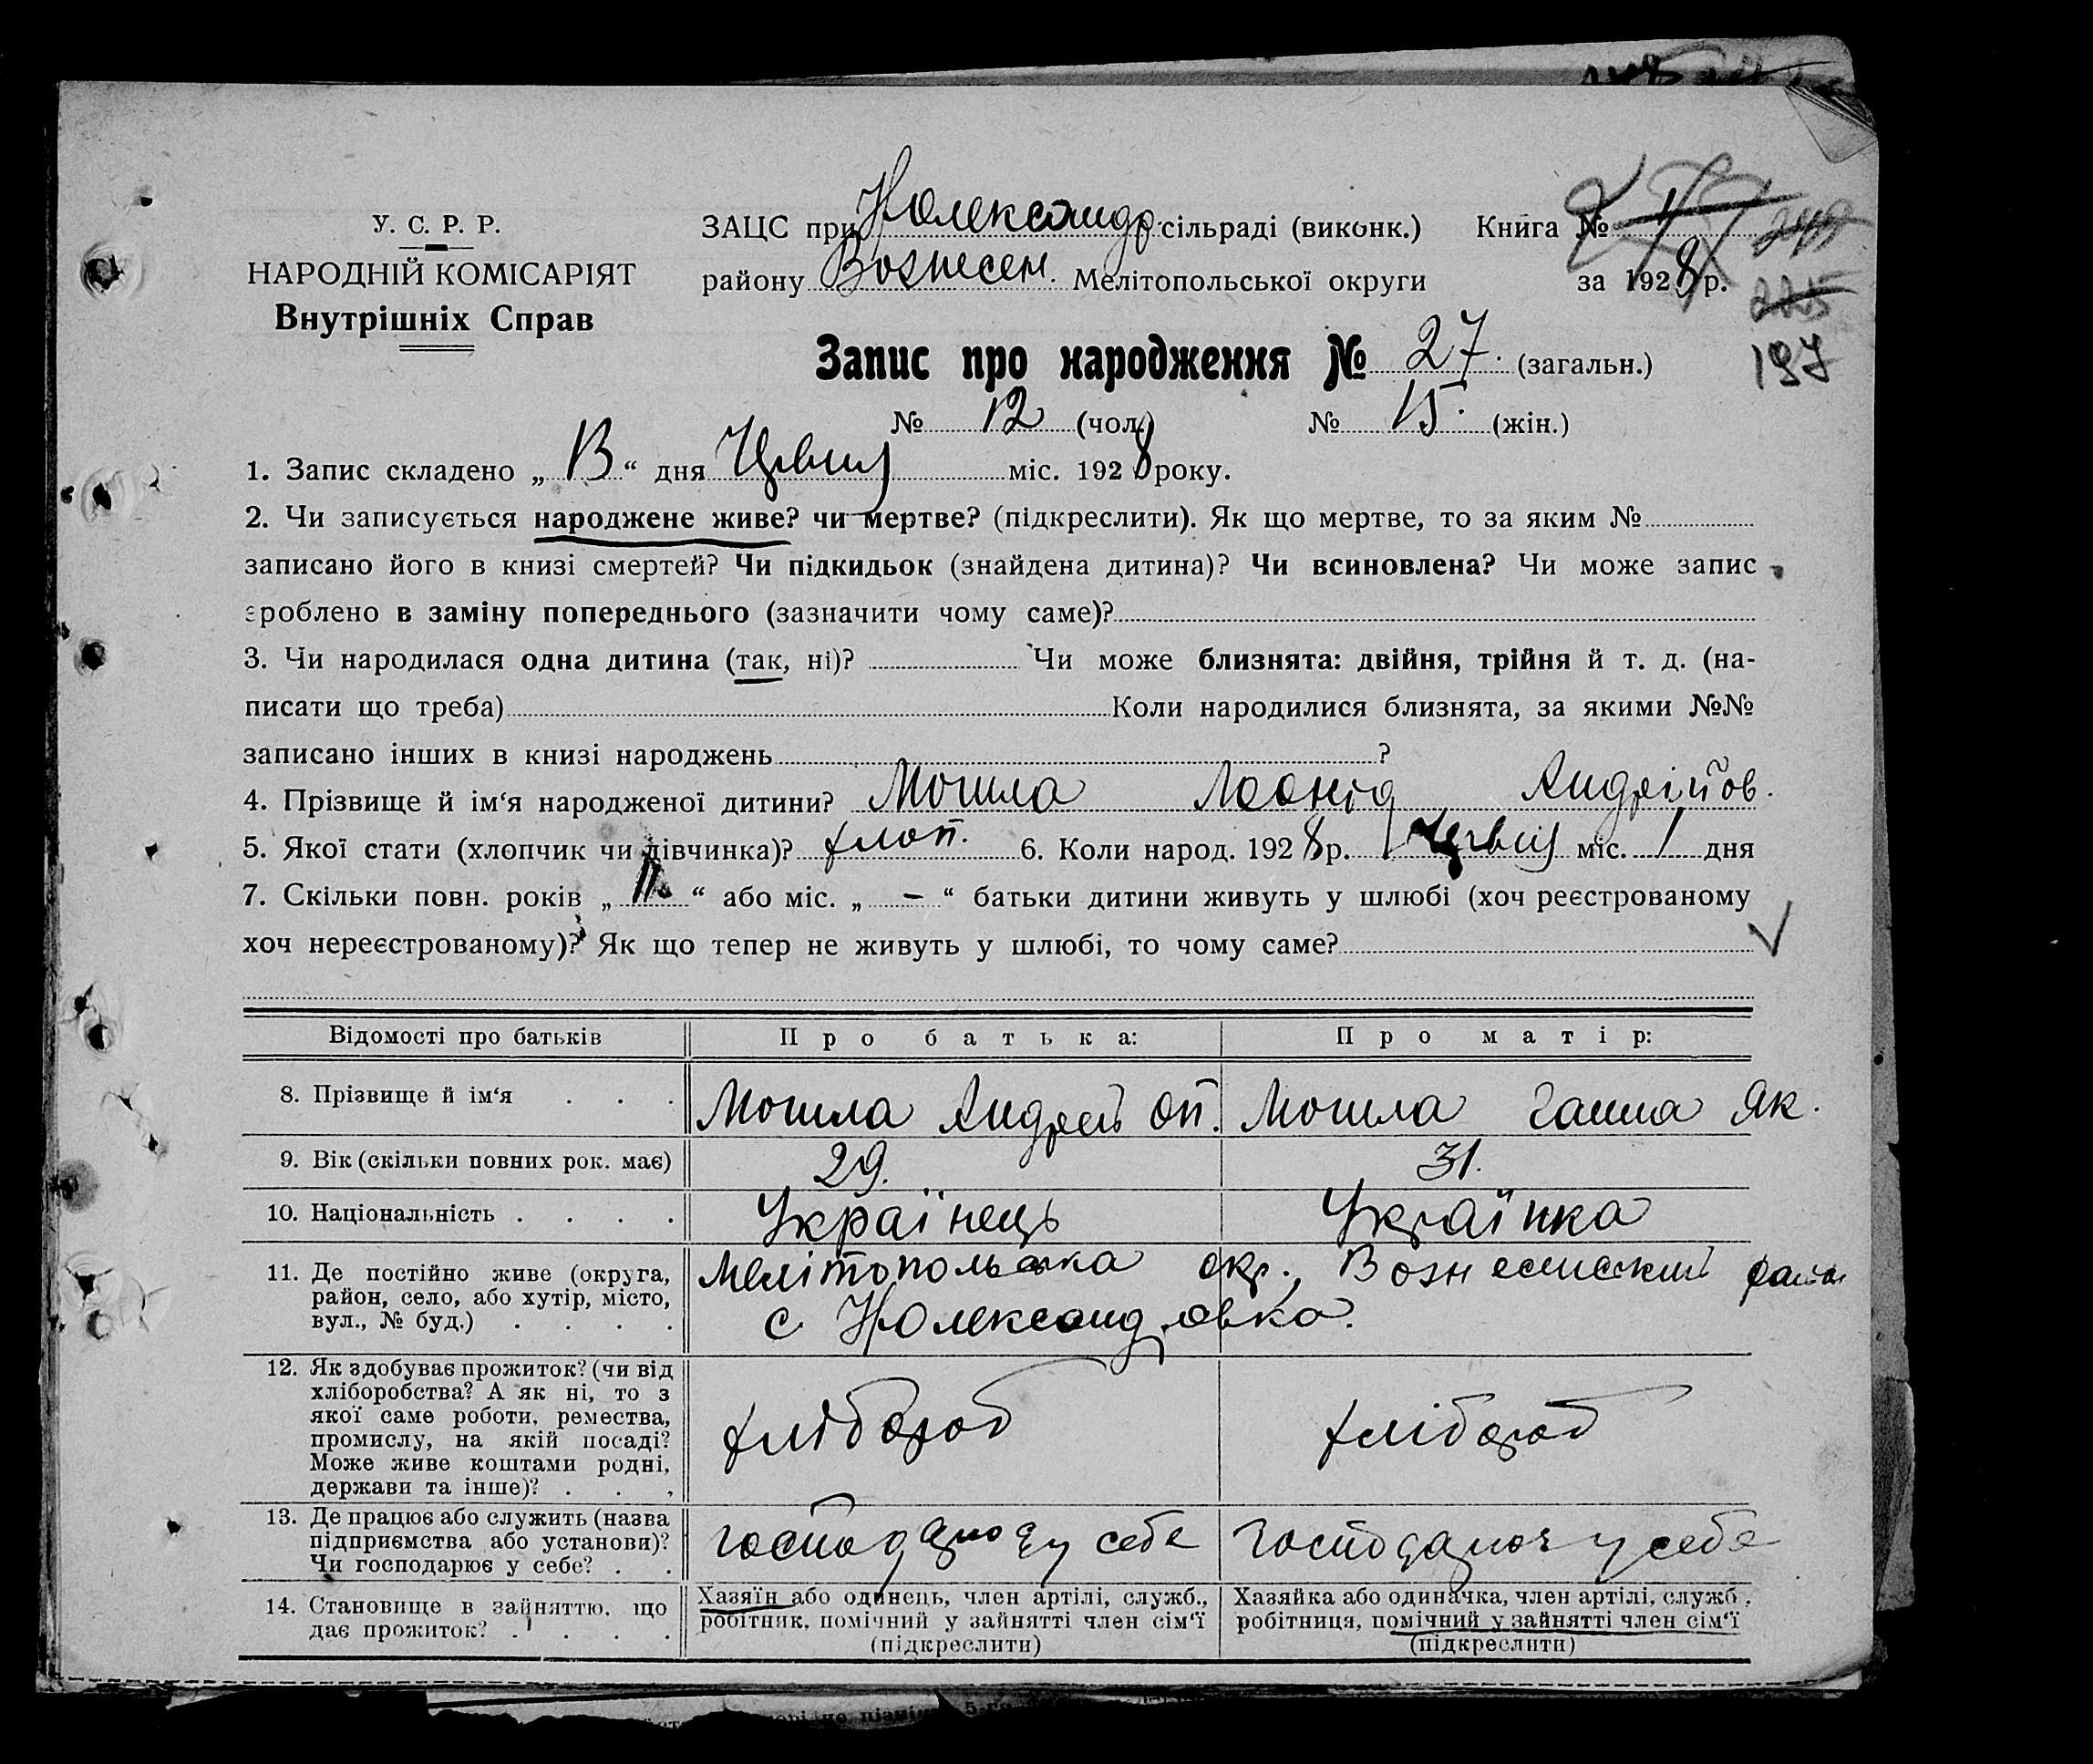 У. С. Р. Р.
НАРОДНІЙ КОМІСАРІЯТ
Внутрішніх Справ
ЗАЦС при Нолександр. сільраді (виконк.) Книга №
району Вознесен. Мелітопольської округи за 1928 р.
225
197
Запис про народження № 27. (загальн.)
№ 12 (чол.) № 15. (жін.)
1. Запис складено „ “ дня Червня міс. 1928 року.
2. Чи записується народжене живе? чи мертве? (підкреслити). Як що мертве, то за яким №
записано його в книзі смертей? Чи підкидьок (знайдена дитина)? Чи всиновлена? Чи може запис
зроблено в заміну попереднього (зазначити чому саме)?
3. Чи народилася одна дитина (так, ні)? Чи може близнята: двійня, трійня й т. д. (на-
писати що треба) Коли народилися близнята, за якими №№
записано інших в книзі народжень ?
4. Прізвище й ім‘я народженої дитини? Могила Леонід Андрійов.
5. Якої стати (хлопчик чи дівчинка)? хлоп. 6. Коли народ. 1928 р. Червня міс. 1 дня
7. Скільки повн. років „ “ або міс. „ – “ батьки дитини живуть у шлюбі (хоч реєстрованому
хоч нереєстрованому)? Як що тепер не живуть у шлюбі, то чому саме?
Відомості про батьків Про батька: Про матір:
8. Прізвище й ім‘я . . . Могила Андрей Оп. Могила Ганна Як.
9. Вік (скільки повних рок. має) 29. 31.
10. Національність . . . . Українець Українка
11. Де постійно живе (округа,
район, село, або хутір, місто,
вул., № буд.) . . . .
Мелітопольска окр., Вознесенский район
с Нолександровка.
12. Як здобуває прожиток? (чи від
хліборобства? А як ні, то з
якої саме роботи, ремества,
промислу, на якій посаді?
Може живе коштами родні,
держави та інше)? . . .
хлібороб хлібороб
13. Де працює або служить (назва
підприємства або установи)?
Чи господарює у себе? . .
господарює у себе господарює у себе
14. Становище в зайняттю, що
дає прожиток? . . . .
Хазяїн або одинець, член артілі, служб.,
робітник, помічний у зайнятті член сім‘ї
(підкреслити)
Хазяйка або одиначка, член артілі, служб.,
робітниця, помічний у зайнятті член сім‘ї
(підкреслити)